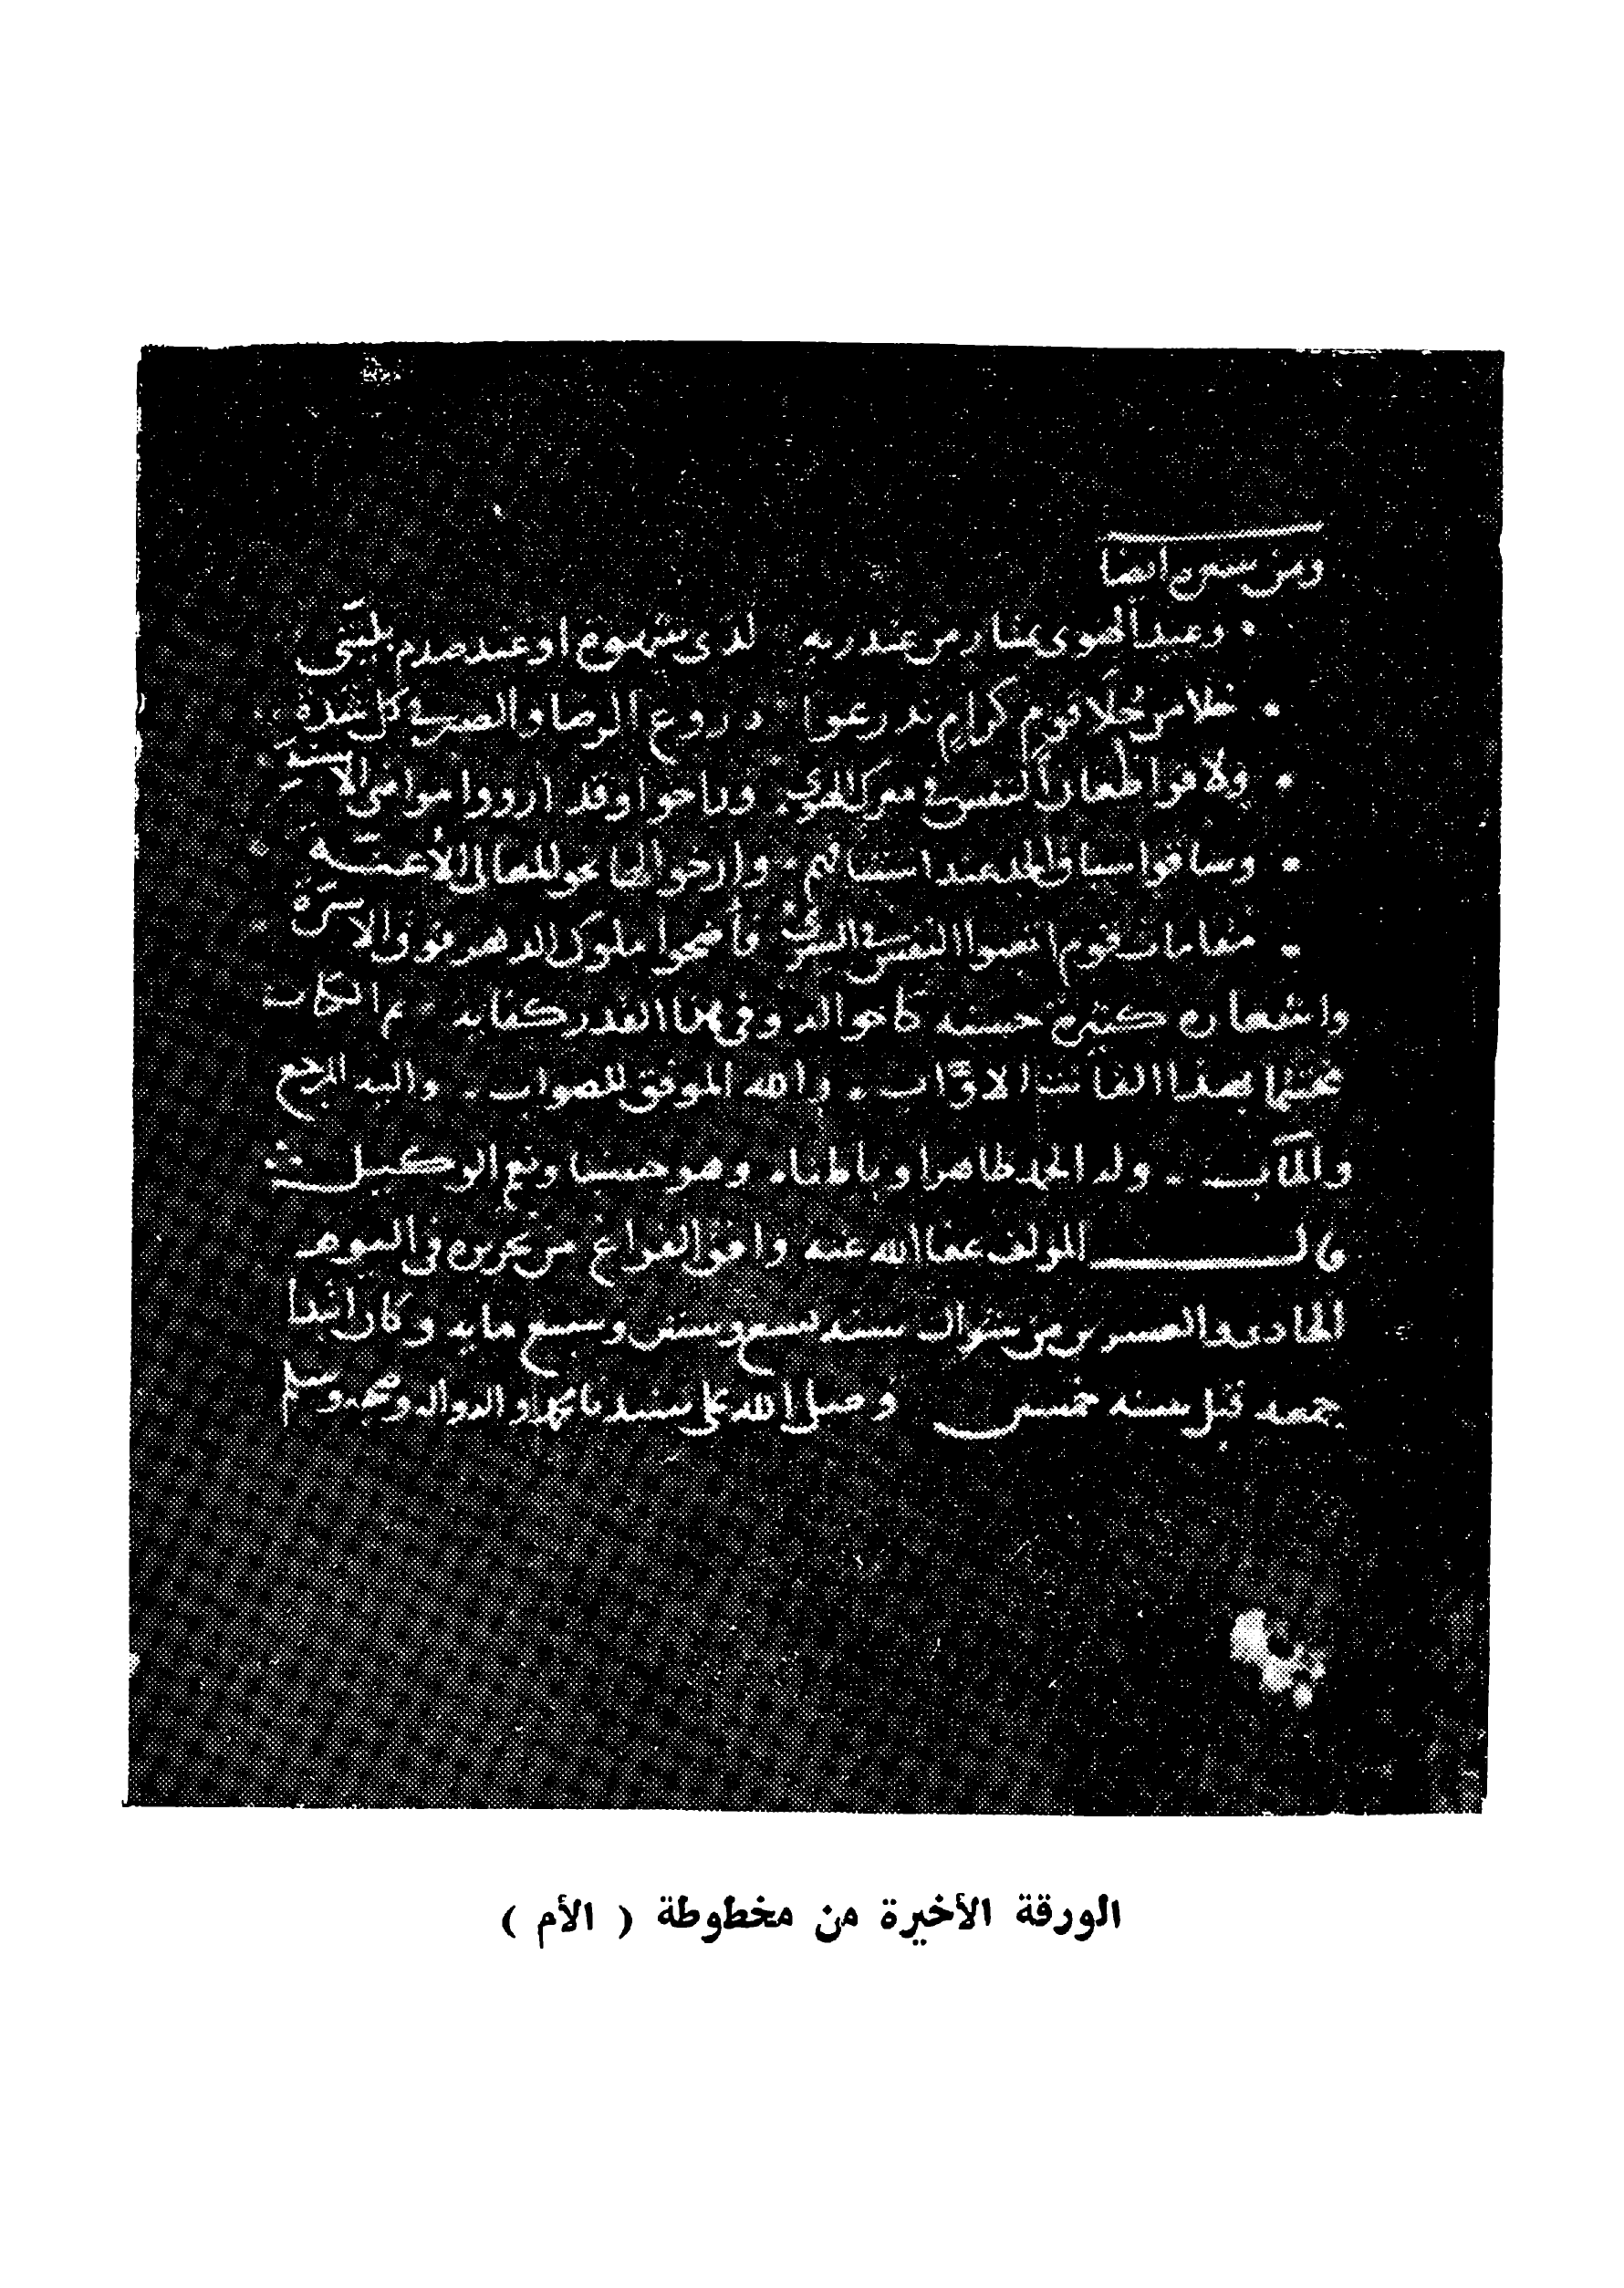 ومن شعره ايضا
وعبد الهوى يمتاز من عبد ربه لدى شهوة او عند صدم بلية
خلا من حلا قوم كرام تدرعوا دروع الرضا والصبر في كل شدة
ولاقوا طعان النفس في معرك الهوى وراحوا وقد ارووا مواضى الاسنة
وساقوا جياد الجد عند استباقهم وارخوا لها نحو المعالى الأعنة
مقامات قوم اتعبوا النفس في السرى فأضحوا ملوك الدهر فوق الاسرة
واشعاره كثيرة حسنة كاحواله وفي هذا القدر كفاية تم الكتاب
مختتما بهذا الفائت الاواب والله الموفق للصواب واليه المرجع
والمآب وله الحمد ظاهرا وباطنا وهو حسبنا ونعم الوكيل
قال المؤلف عفا الله عنه وافق الفراغ من تحريره في اليوم
الحادى والعشرين من شوال سنة تسع وستين وسبع مايه وكان ابتدا
جمعه قبل سنة خمس وصلى الله على سيدنا محمد واله وصحبه وسلم
الورقة الأخيرة من مخطوطة ( الأم )